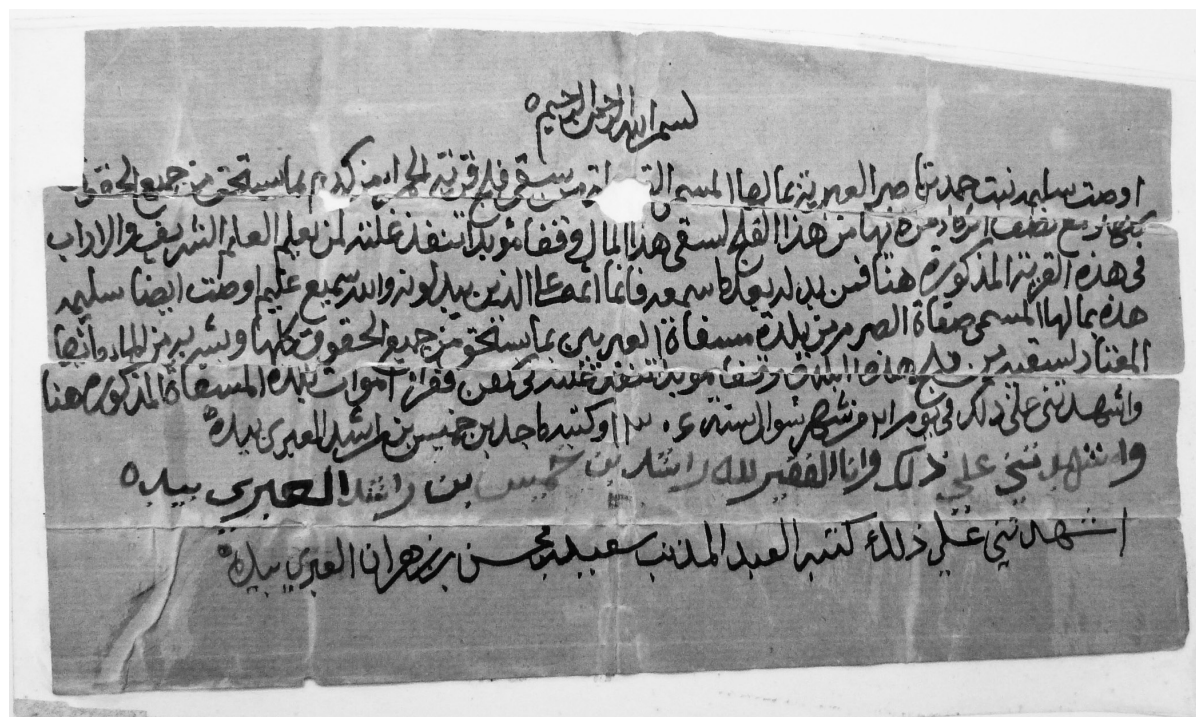 بسم الله الرحمن الرحيم
اوصت سليمه بنت حمد بن ناصر العبرية بمالها المسمى من سقي فلج قرية الحمراء من كدم بما يستحق من جميع الحقوق
كلها مع نصف اثر ماء من مائها من هذا الفلج لسقي هذا المال وقفا مؤبدا تنفذ غلته لمن يعلم العلم الشريف والاداب
في هذه القرية المذكورة هنا فمن بدله بعدما سمعه فانما اثمه على الذين يبدلونه والله سميع عليم اوصت ايضا سليمه
هذه بمالها المسمى صفاة الصرم من بلدة مسفاة العبريين بما يستحق من جميع الحقوق كلها وبشربه من الماء وايضا
المعتاد لسقيه من فلج هذه البلدة وقفا مؤبدا تنفذ غلته في اموات بلدة المسفاة المذكورة هنا
واشهدتني على ذلك في يوم من شهر شوال سنة وكتبه ماجد بن خميس بن راشد العبري بيده
واشهدتني على ذلك وانا الفقير لله راشد بن خميس بن راشد العبري بيده
اشهدتني على ذلك كتبه العبد المذنب سعيد بن محسن بن زهران العبري بيده